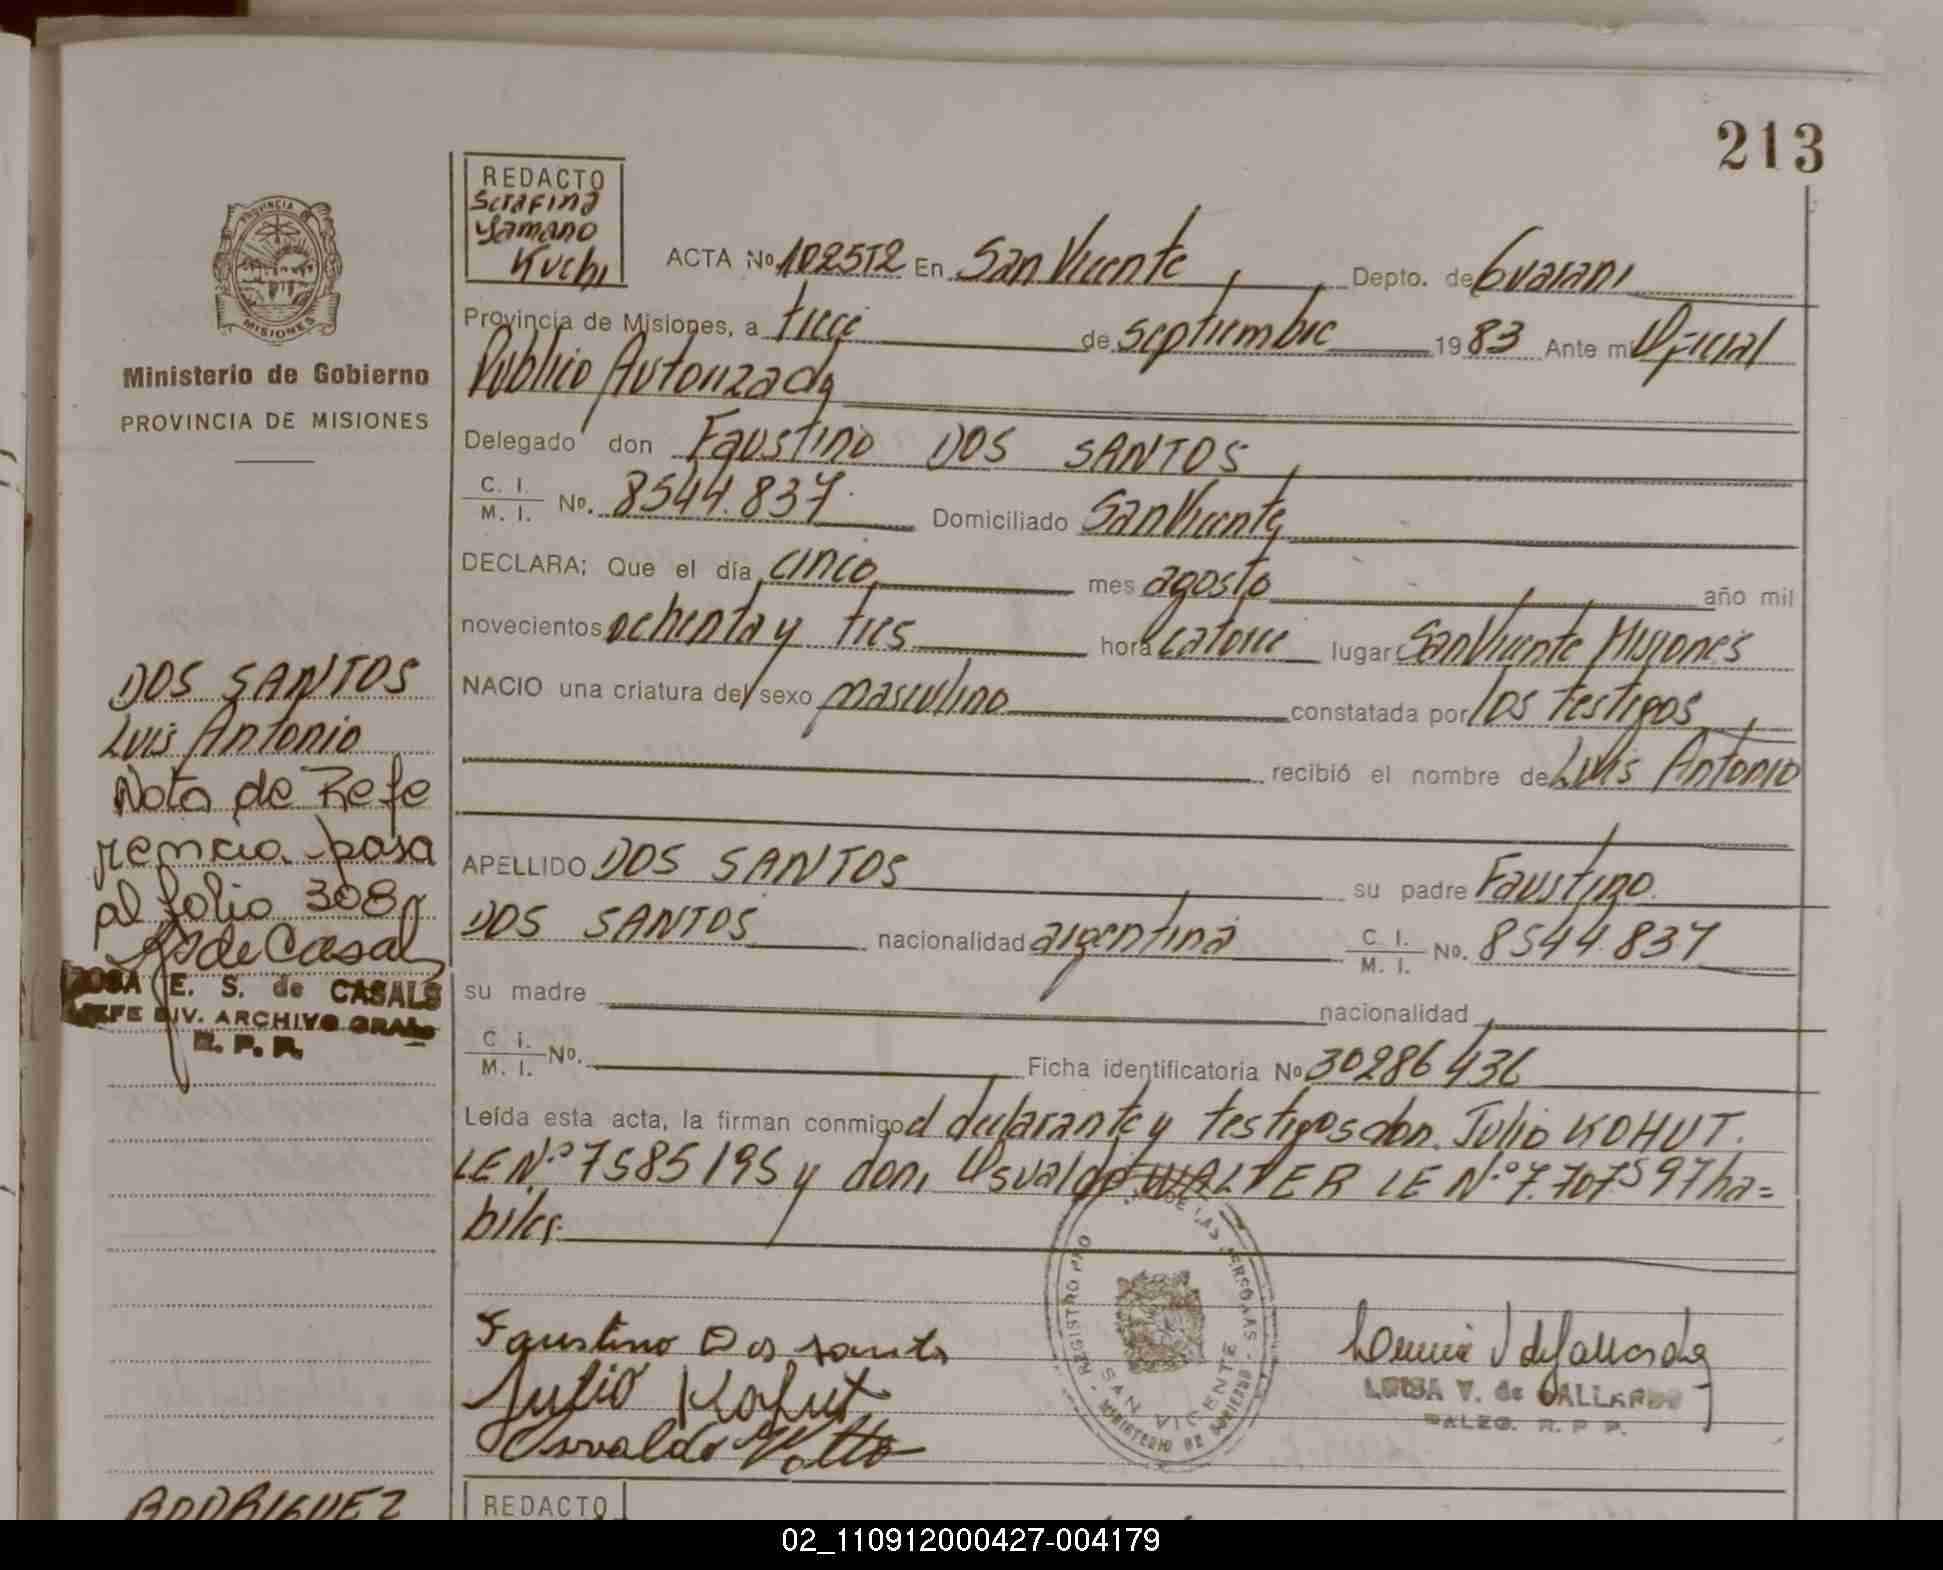 213
REDACTO
Serafina
Yamano
Kuchi
ACTA No 1025T2 En San Vicente, Depto. de Guarani
PROVINCIA
MISIONES
Provincia de Misiones, a trece de septiembre 1983 Ante mi Oficial
Ministerio de Gobierno
PROVINCIA DE MISIONES
Publico Autorizado
Delegado don Faustino DOS SANTOS,
C. I.
M. I. No. 8544.837 Domiciliado San Vicente
DECLARA: Que el día cinco mes agosto año mil
novecientos ochenta y tres hora catorce lugar San Vicente Misiones
NACIO una criatura del sexo masculino constatada por los testigos
recibió el nombre de Luis Antonio
APELLIDO DOS SANTOS su padre Faustino
DOS SANTOS nacionalidad argentina C. I.
M. I. No. 8544.837
su madre nacionalidad
C. i.
M. I. No. Ficha identificatoria No 30286436
Leída esta acta, la firman conmigo el declarante y testigos don Julio KOHUT.
LE N.º 7585195 y don Osvaldo WALTER LE N.º 7.707.597 ha=
biles.
DOS SANTOS
Luis Antonio
Nota de Refe
rencia pasa
al folio 308
R de Casals
ROSA E. S. de CASALS
JEFE DIV. ARCHIVO GRAL.
R. P. P.
Faustino Dos santos
Julio Kohut
Osvaldo
REGISTRO PRO DE LAS PERSONAS
SAN VICENTE
MINISTERIO DE GOBIERNO
LUISA V. de GALLARDO
DALEG. R. P. P.
RODRIGUEZ
REDACTO
02_110912000427-004179